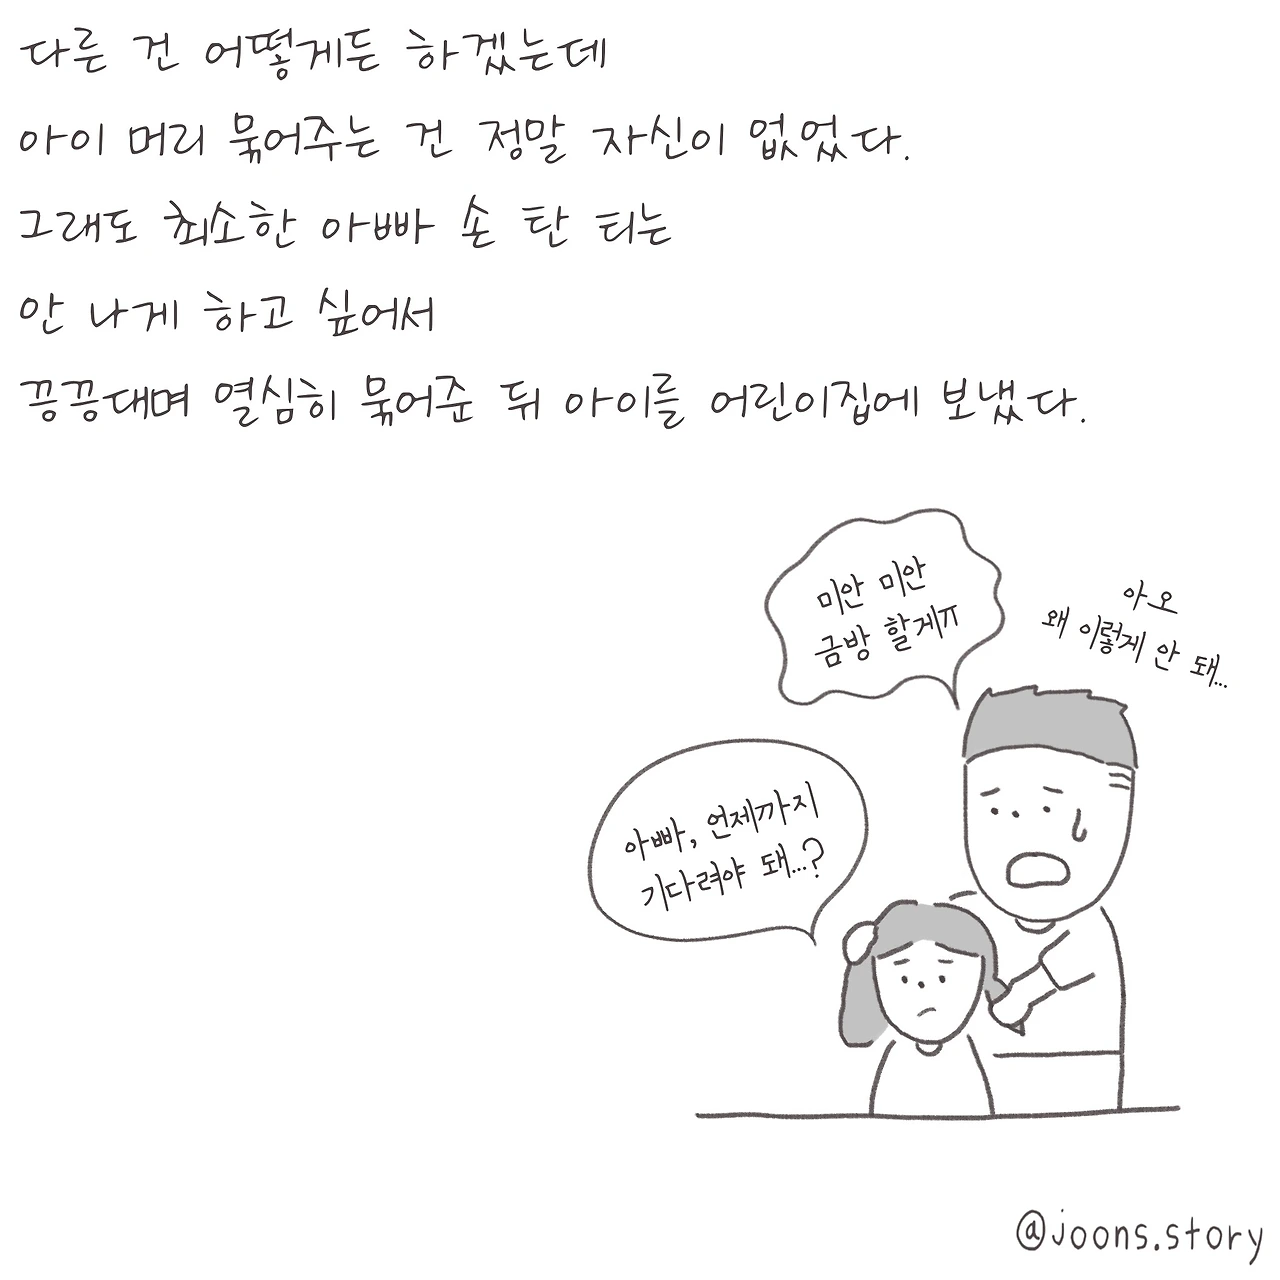 다른 건 어떻게든 하겠는데
아이 머리 묶어주는 건 정말 자신이 없었다.
그래도 최소한 아빠 손 탄 티는
안 나게 하고 싶어서
끙끙대며 열심히 묶어준 뒤 아이를 어린이집에 보냈다.
미안 미안
금방 할게ㅠ
아오
왜 이렇게 안 돼...
아빠, 언제까지
기다려야 돼...?
@joons.story